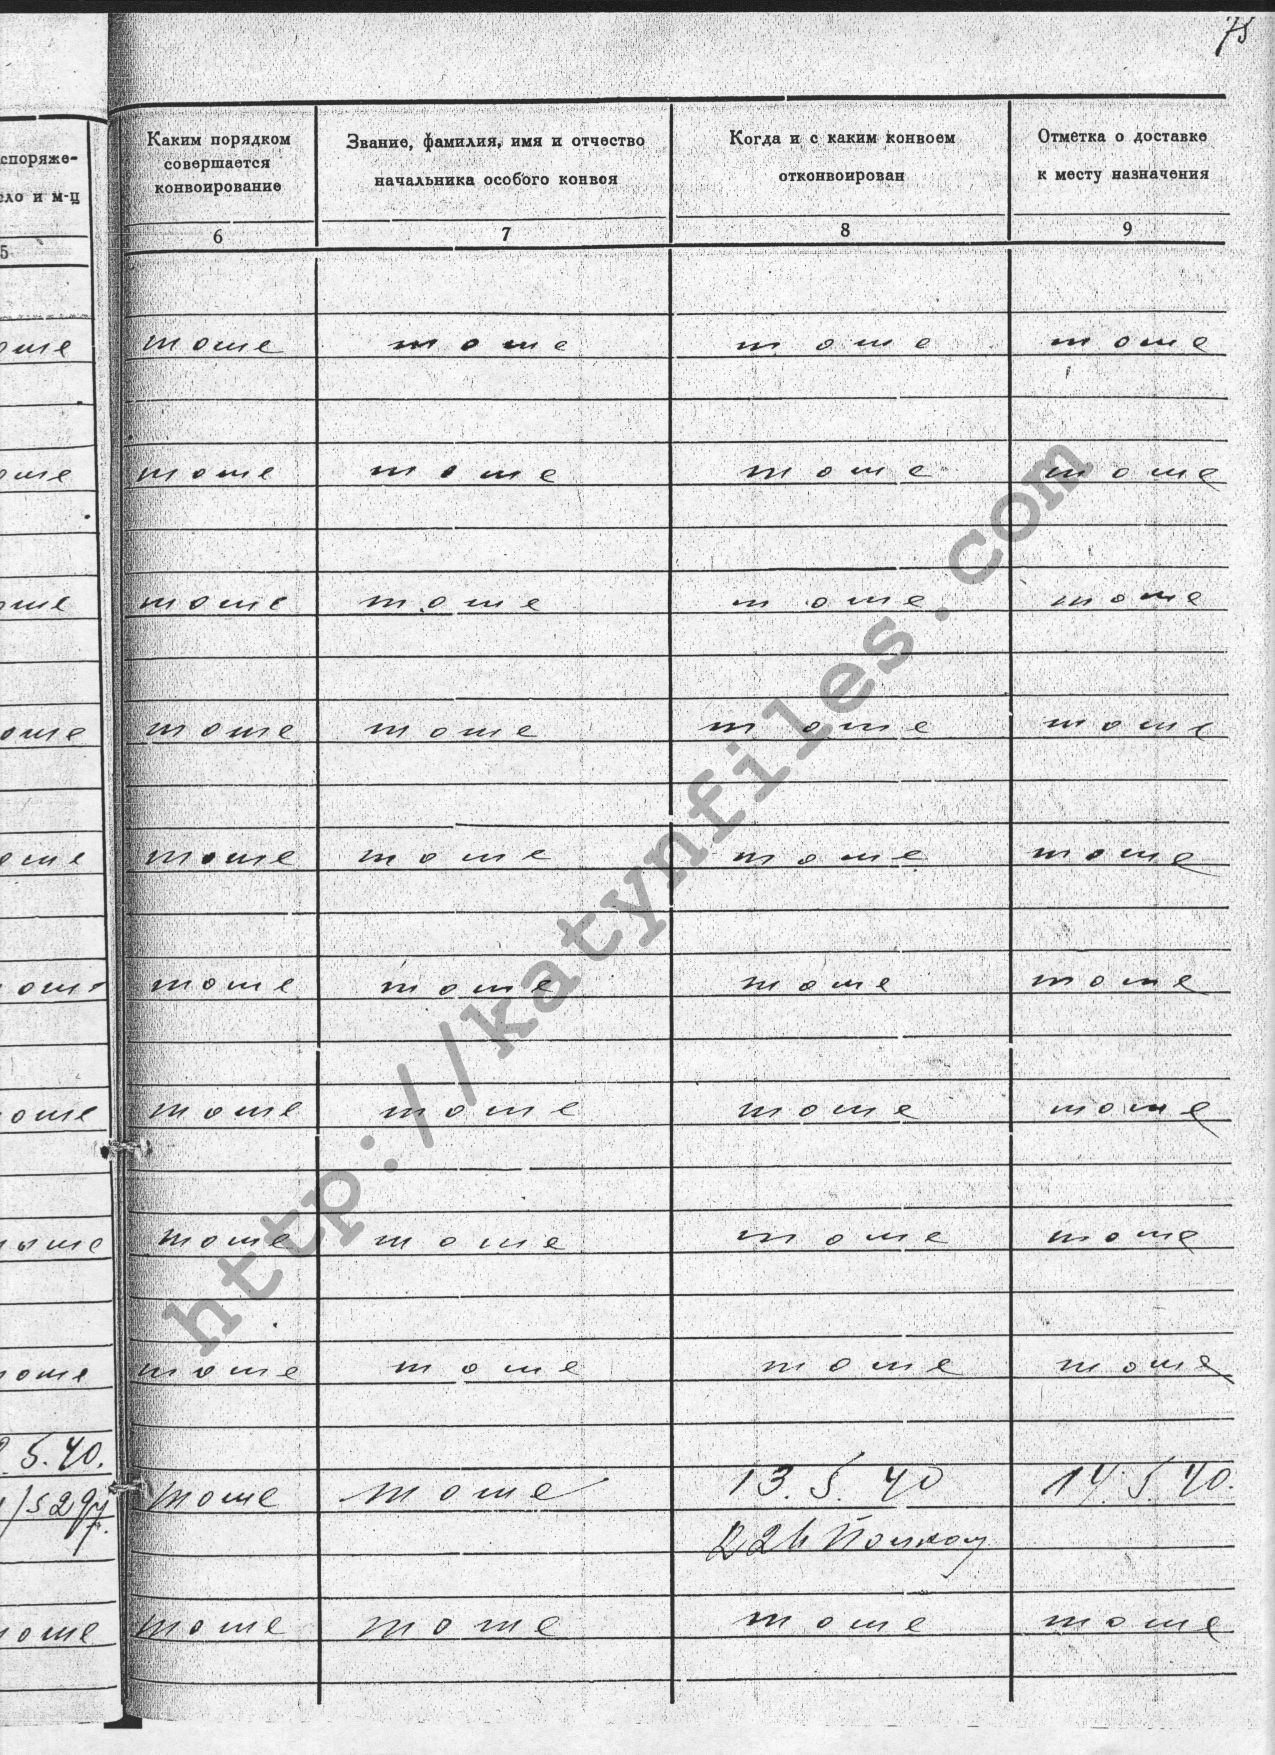 75
споряже-
сло и м-ц
5
Каким порядком
совершается
конвоирование
6
Звание, фамилия, имя и отчество
начальника особого конвоя
7
Когда и с каким конвоем
отконвоирован
8
Отметка о доставке
к месту назначения
9
оже тоже тоже тоже тоже
оже тоже тоже тоже тоже
оже тоже тоже тоже тоже
оже тоже тоже тоже тоже
оже тоже тоже тоже тоже
оже тоже тоже тоже тоже
тоже тоже тоже тоже тоже
тоже тоже тоже тоже тоже
тоже тоже тоже тоже тоже
5.40.
тоже тоже 13.5.40 14.5.40.
226 Полком
тоже тоже тоже тоже тоже
http://katynfiles.com